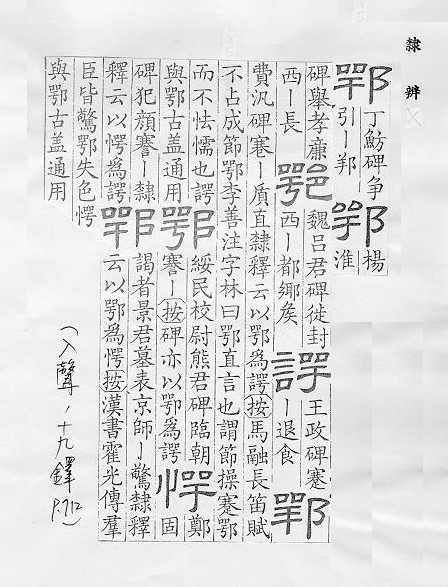 隸辨
鄂丁魴碑爭鄂揚
引丨邦淮
碑舉孝廉鄂魏呂君碑徙封諤王政碑蹇
西丨長西丨都鄉矦丨退食鄂
費汎碑蹇丨質直隸釋云以鄂為諤按馬融長笛賦
不占成節鄂李善注字林曰鄂直言也謂節操蹇鄂
而不怯懦也諤鄂綏民校尉熊君碑臨朝愕鄭
與鄂古盖通用謇丨按碑亦以鄂為諤固
碑犯顏謇丨隸鄂謁者景君墓表京師丨驚隸釋
釋云以愕為諤云以鄂為愕按漢書霍光傳羣
臣皆驚鄂失色愕
與鄂古盖通用
(入聲、十九鐸 P.712)